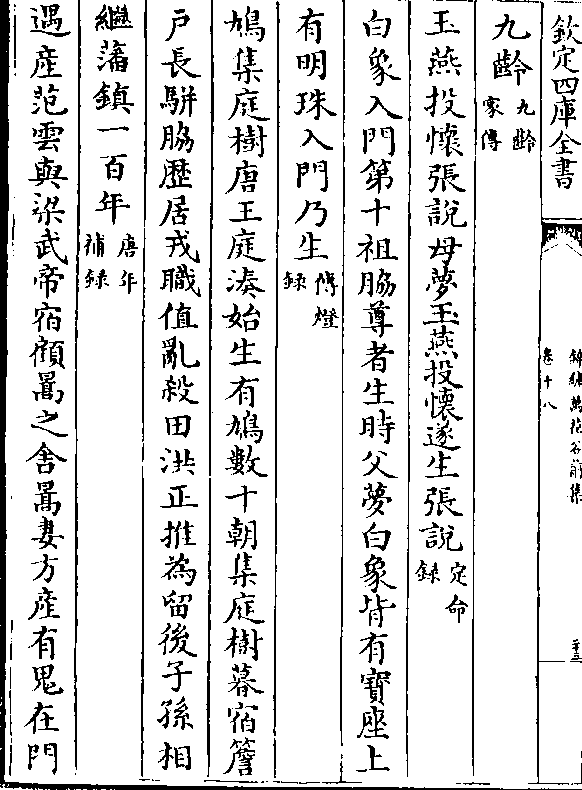 欽定四庫全書
錦繡萬花谷前集
卷十八
九齡九齡家傳
玉燕投懷張說母夢玉燕投懷遂生張說定命錄
白象入門第十祖脇尊者生時父夢白象背有寶座上
有明珠入門乃生傳燈錄
鳩集庭樹唐王庭湊始生有鳩數十朝集庭樹暮宿簷
戶長駢脇歷居戎職值亂殺田洪正推為留後子孫相
繼藩鎮一百年唐年補錄
遇產范雲與梁武帝宿顧暠之舍暠妻方產有鬼在門